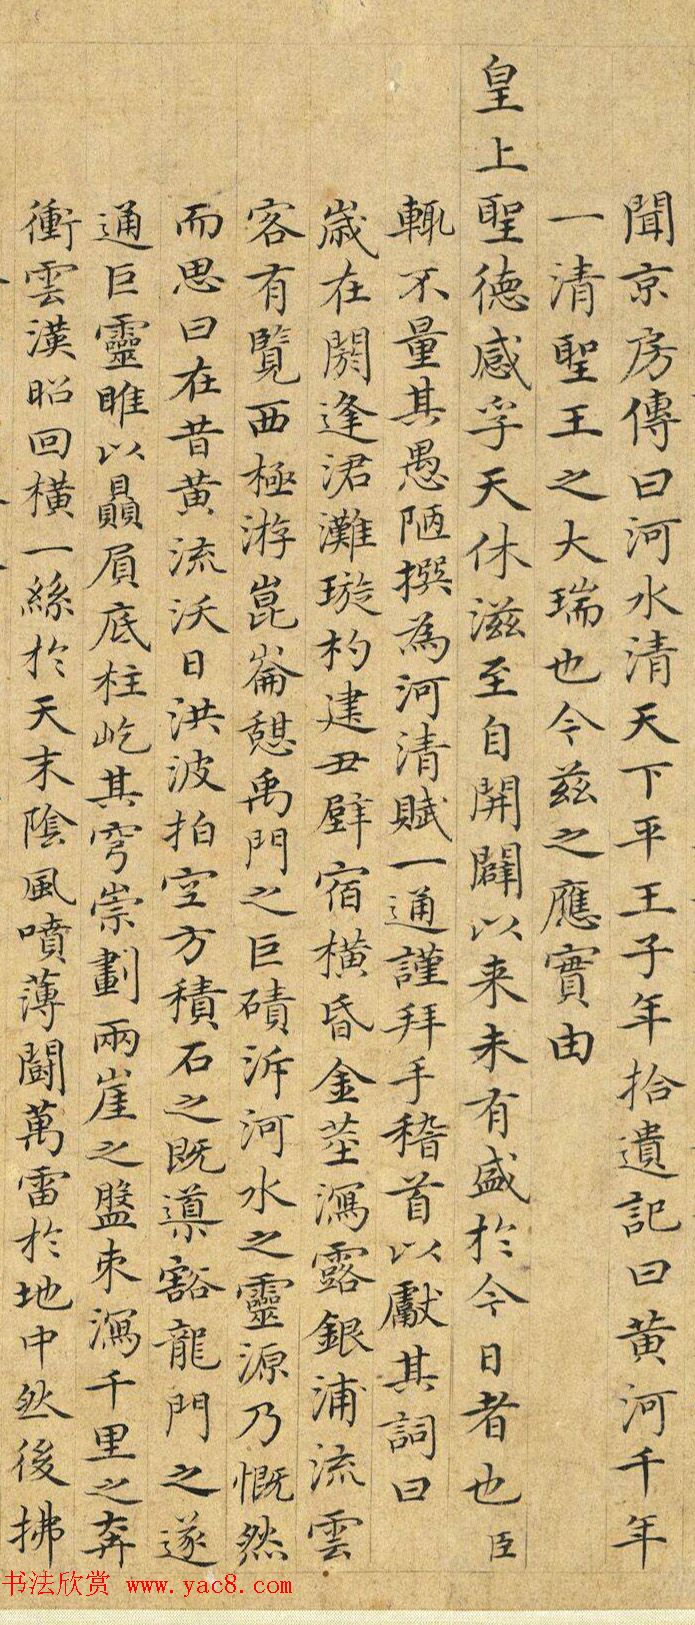 聞京房傳曰河水清天下平王子年拾遺記曰黄河千年
一清聖王之大瑞也今兹之應實由
皇上聖德感孚天休滋至自開闢以来未有盛於今日者也臣
輒不量其愚陋撰為河清賦一通謹拜手稽首以獻其詞曰
歲在閼逢涒灘璇杓建丑壁宿橫昏金莖瀉露銀浦流雲
客有覽西極游崑崙憩禹門之巨磧泝河水之靈源乃慨然
而思曰在昔黄流沃日洪波拍空方積石之既導豁龍門之遂
通巨靈雎以贔屓底柱屹其穹崇劃兩崖之盤束瀉千里之奔
衝雲漢昭回橫一絲於天末陰風噴薄鬭萬雷於地中然後拂
书法欣赏 www.yac8.com